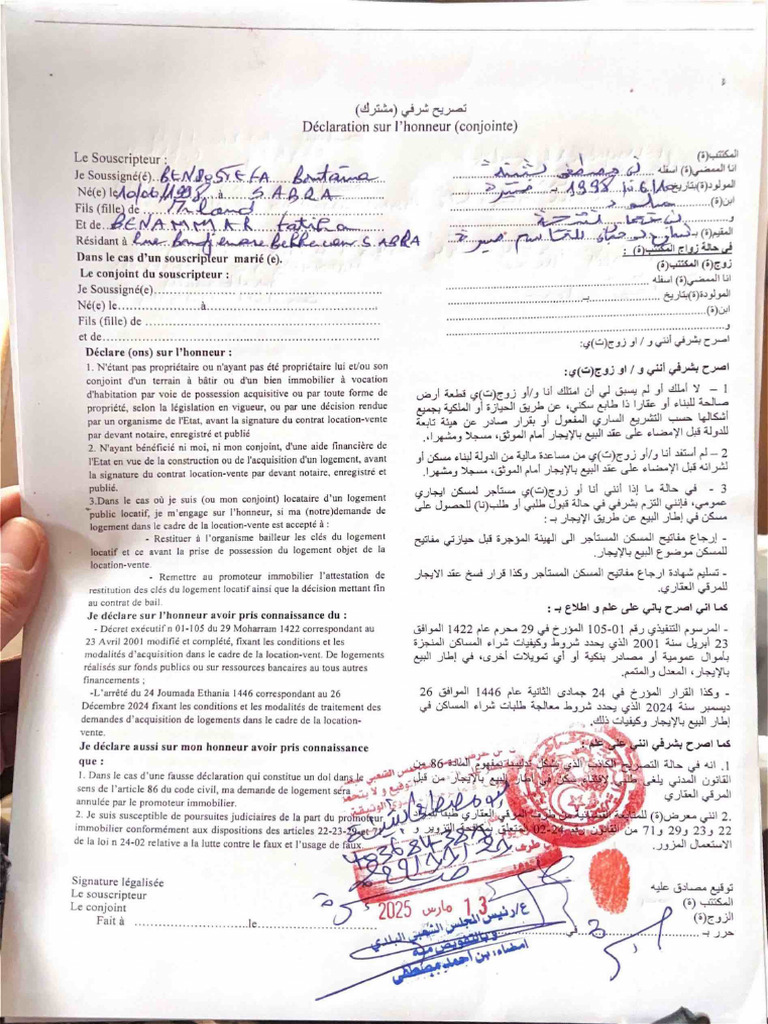 تصريح شرفي (مشترك)
Déclaration sur l'honneur (conjointe)
Le Souscripteur :
Je Soussigné(é). BENBOSTEFA
Né(e) le 10/06/1998 à SABRA
Fils (fille) de Miloud
Et de BENAMMAR Fatiha
Résidant à SABRA
Dans le cas d'un souscripteur marié (e).
Le conjoint du souscripteur :
Je Soussigné(e)
Né(e) le à
Fils (fille) de
et de
Déclare (ons) sur l'honneur :
1. N'étant pas propriétaire ou n'ayant pas été propriétaire lui et/ou son
conjoint d'un terrain à bâtir ou d'un bien immobilier à vocation
d'habitation par voie de possession acquisitive ou par toute forme de
propriété, selon la législation en vigueur, ou par une décision rendue
par un organisme de l'Etat, avant la signature du contrat location-vente
par devant notaire, enregistré et publié
2. N'ayant bénéficié ni moi, ni mon conjoint, d'une aide financière de
l'Etat en vue de la construction ou de l'acquisition d'un logement, avant
la signature du contrat location-vente par devant notaire, enregistré et
publié.
3.Dans le cas où je suis (ou mon conjoint) locataire d'un logement
public locatif, je m'engage sur l'honneur, si ma (notre)demande de
logement dans le cadre de la location-vente est accepté à :
- Restituer à l'organisme bailleur les clés du logement
locatif et ce avant la prise de possession du logement objet de la
location-vente.
- Remettre au promoteur immobilier l'attestation de
restitution des clés du logement locatif ainsi que la décision mettant fin
au contrat de bail.
Je déclare sur l'honneur avoir pris connaissance du :
- Décret exécutif n 01-105 du 29 Moharram 1422 correspondant au
23 Avril 2001 modifié et complété, fixant les conditions et les
modalités d'acquisition dans le cadre de la location-vent. De logements
réalisés sur fonds publics ou sur ressources bancaires au tous autres
financements ;
-L'arrêté du 24 Joumada Ethania 1446 correspondant au 26
Décembre 2024 fixant les conditions et les modalités de traitement des
demandes d'acquisition de logements dans le cadre de la location-
vente.
Je déclare aussi sur mon honneur avoir pris connaissance
que :
1. Dans le cas d'une fausse déclaration qui constitue un dol dans le
sens de l'article 86 du code civil, ma demande de logement sera
annulée par le promoteur immobilier.
2. Je suis susceptible de poursuites judiciaires de la part du promoteur
immobilier conformément aux dispositions des articles 22-23-29 et 71
de la loi n 24-02 relative a la lutte contre le faux et l'usage de faux.
Signature légalisée
Le souscripteur
Le conjoint
Fait à le
المكتتب(ة)
انا الممضي(ة) اسفله
المولود(ة)بتاريخ 1998 بـ صبرة
ابن(ة) ميلود
و
المقيم(ة) بـ صبرة
في حالة زواج المكتتب(ة) :
زوج(ة) المكتتب(ة)
انا الممضي(ة) اسفله
المولودة(ة)بتاريخ بـ
ابن(ة)
و
اصرح بشرفي أنني و / او زوج(ت)ي:
اصرح بشرفي أنني و / او زوج(ت)ي:
1 – لا أملك أو لم يسبق لي أن امتلك أنا و/أو زوج(ت)ي قطعة أرض
صالحة للبناء أو عقارا ذا طابع سكني، عن طريق الحيازة أو الملكية بجميع
أشكالها حسب التشريع الساري المفعول أو بقرار صادر عن هيئة تابعة
للدولة قبل الإمضاء على عقد البيع بالإيجار أمام الموثق، مسجلا ومشهرا.
2 – لم أستفد أنا و/أو زوج(ت)ي من مساعدة مالية من الدولة لبناء مسكن أو
لشرائه قبل الإمضاء على عقد البيع بالإيجار أمام الموثق، مسجلا ومشهرا.
3 - في حالة ما إذا أنني أنا أو زوج(ت)ي مستأجر لمسكن ايجاري
عمومي، فإنني التزم بشرفي في حالة قبول طلبي أو طلب(نا) للحصول على
مسكن في إطار البيع عن طريق الإيجار بـ :
- إرجاع مفاتيح المسكن المستأجر الى الهيئة المؤجرة قبل حيازتي مفاتيح
للمسكن موضوع البيع بالإيجار.
- تسليم شهادة ارجاع مفاتيح المسكن المستأجر وكذا قرار فسخ عقد الايجار
للمرقي العقاري.
كما اني اصرح باني على علم و اطلاع بـ :
- المرسوم التنفيذي رقم 01-105 المؤرخ في 29 محرم عام 1422 الموافق
23 أبريل سنة 2001 الذي يحدد شروط وكيفيات شراء المساكن المنجزة
بأموال عمومية أو مصادر بنكية أو أي تمويلات أخرى، في إطار البيع
بالإيجار، المعدل والمتمم.
- وكذا القرار المؤرخ في 24 جمادى الثانية عام 1446 الموافق 26
ديسمبر سنة 2024 الذي يحدد شروط معالجة طلبات شراء المساكن في
إطار البيع بالإيجار وكيفيات ذلك.
كما اصرح بشرفي انني على علم :
1. انه في حالة التصريح الكاذب الذي يشكل تدليسا بمفهوم المادة 86 من
القانون المدني يلغى طلبي لاقتناء سكن في إطار البيع بالإيجار من قبل
المرقي العقاري
2. انني معرض(ة) للمتابعة القضائية من طرف المرقي العقاري طبقا للمواد
22 و23 و29 و71 من القانون رقم 24-02 المتعلق بمكافحة التزوير و
الاستعمال المزور.
توقيع مصادق عليه
المكتتب (ة)
الزوج(ة)
حرر بـ في
13 مارس 2025
ع/رئيس المجلس الشعبي البلدي
وبالتفويض منه
امضاء: بن احمد مصطفى